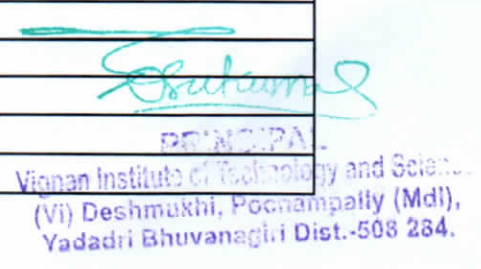 PRINCIPAL
Vignan Institute of Technology and Scie
(Vi) Deshmukhi, Pochampally (Mdl),
Yadadri Bhuvanagiri Dist.-508 284.